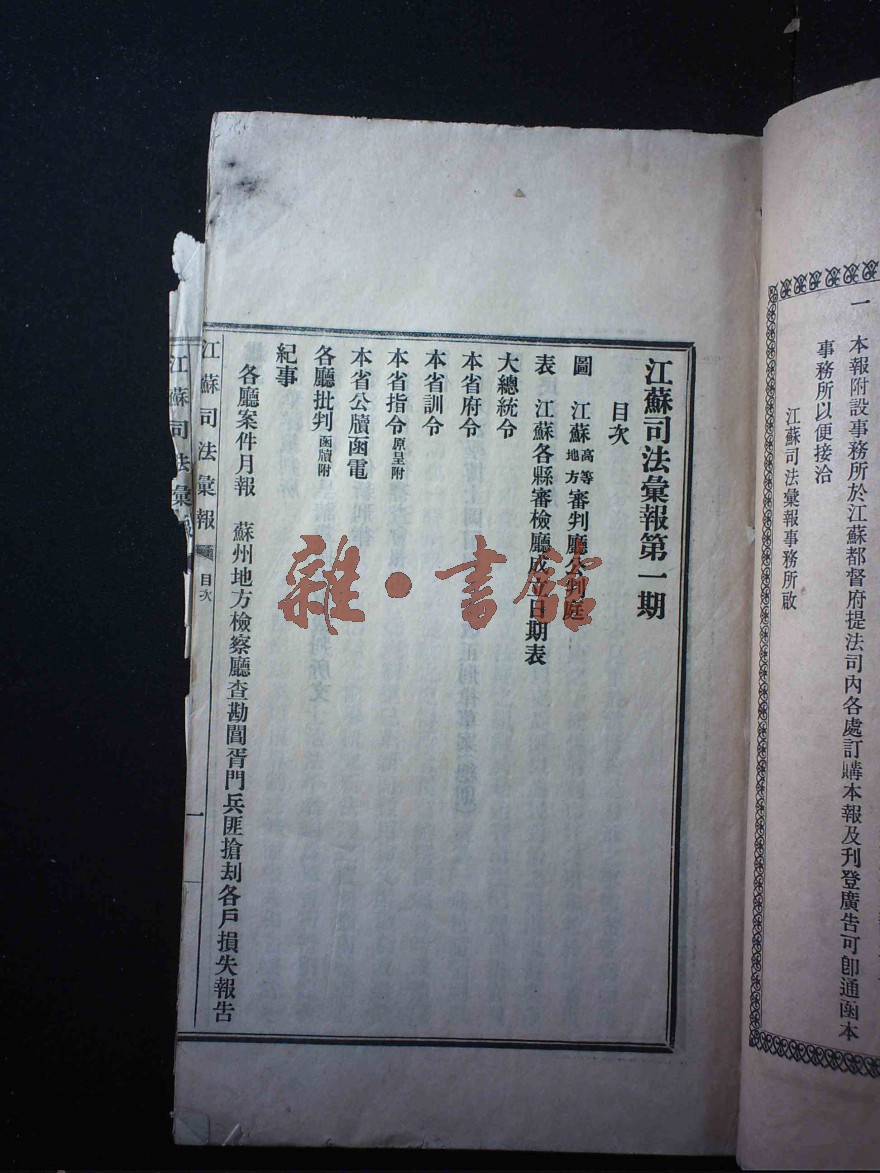 一 本報附設事務所於江蘇都督府提法司內各處訂購本報及刊登廣告可卽通函本
事務所以便接洽
江蘇司法彙報事務所啟
江蘇司法彙報第一期
目次
圖 江蘇高等地方審判廳公判庭
表 江蘇各縣審檢廳成立日期表
大總統令
本省府令
本省訓令
本省指令原呈附
本省公牘函電
各廳批判函牘附
紀事
各廳案件月報 蘇州地方檢察廳查勘閶胥門兵匪搶刦各戶損失報告
江蘇司法彙報 目次 一
江蘇司法彙
雜·書館